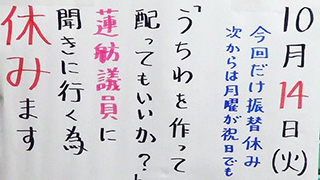 10月14日(火)
今回だけ振替休み
次からは月曜が祝日でも
「うちわを作って
配ってもいいか?」
蓮舫議員に
聞きに行く為
休みます